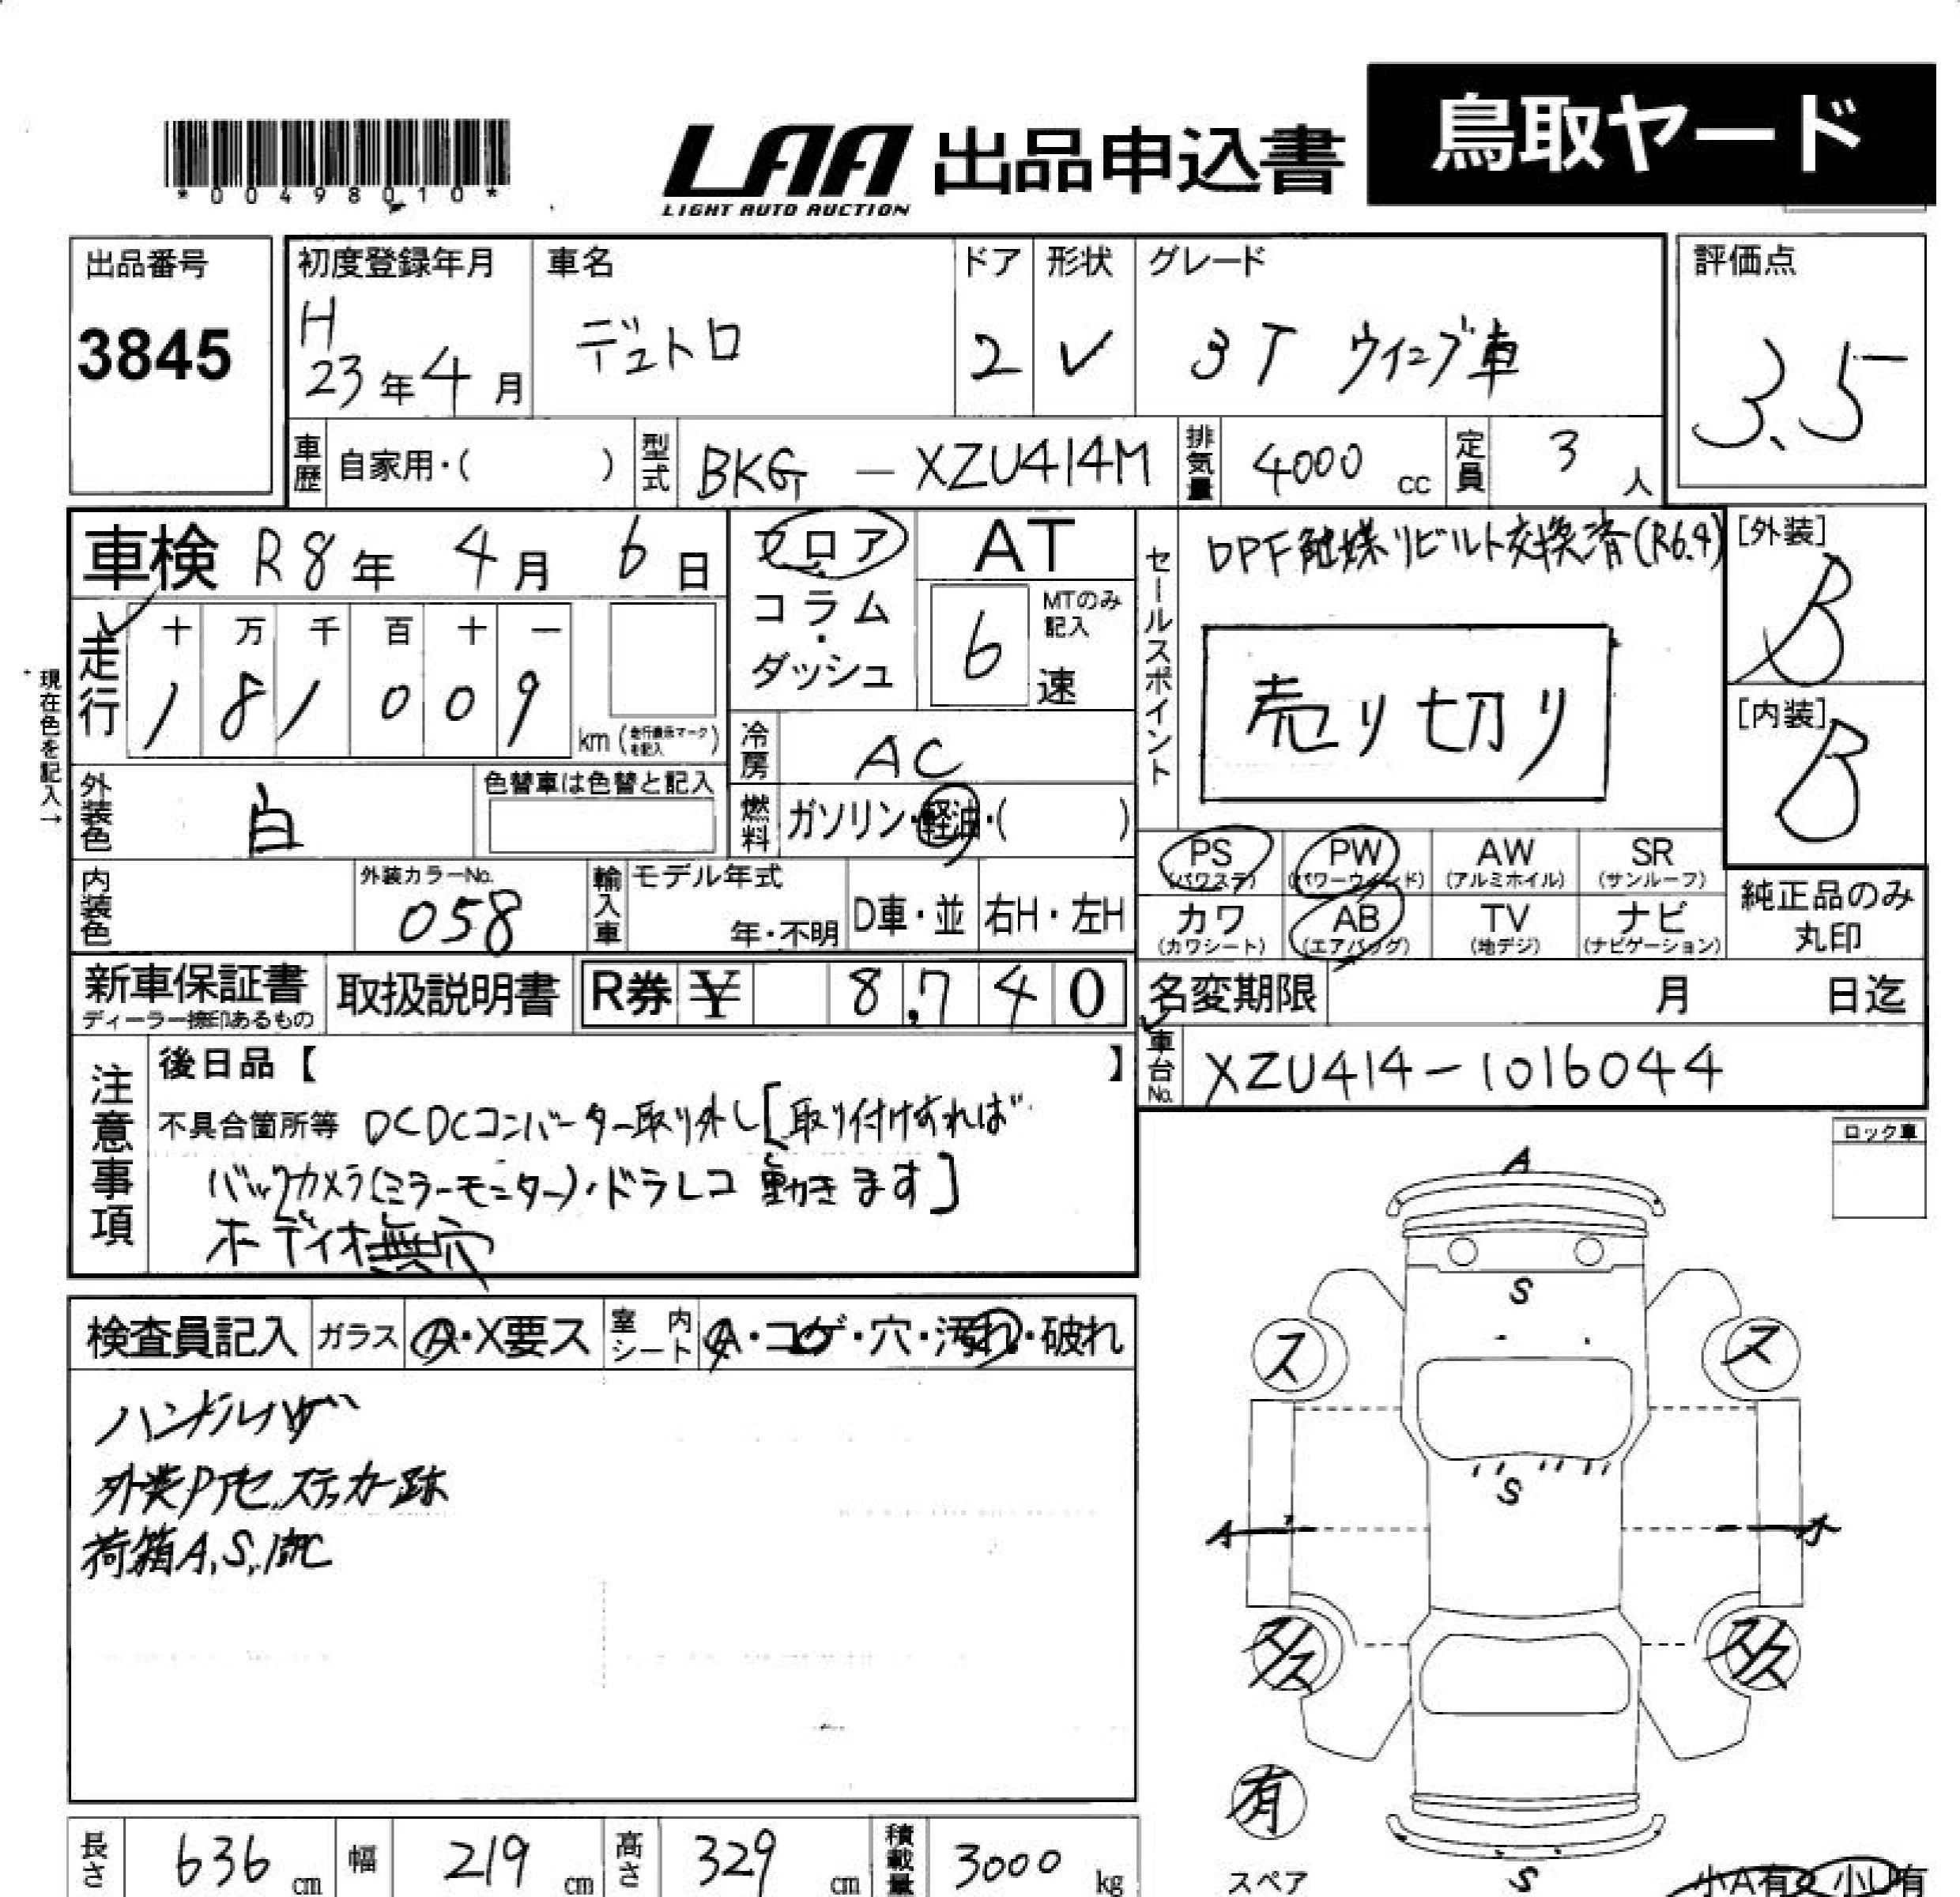 *00498010*
LAA 出品申込書 鳥取ヤード
LIGHT AUTO AUCTION
出品番号 初度登録年月 車名 ドア 形状 グレード 評価点
3845 H23年4月 デュトロ 2 ✓ 3T ウイング車 3.5
車歴 自家用・( ) 型式 BKG - XZU414M 排気量 4000cc 定員 3人
車検 R8年 4月 6日 フロア AT
コラム・ダッシュ 6速 MTのみ記入
セールスポイント DPF触媒リビルト交換済(R6.9)
売り切り
[外装] B
[内装] B
現在色を記入→
走行 十 万 千 百 十 一
1 8 1 0 0 9 km
冷房 AC
外装色 白 色替車は色替と記入
燃料 ガソリン・軽油・( )
PS (パワステ) PW (パワーウインド) AW (アルミホイル) SR (サンルーフ)
カワ (カワシート) AB (エアバッグ) TV (地デジ) ナビ (ナビゲーション)
純正品のみ丸印
内装色 外装カラーNo. 058 輸入車 モデル年式 年・不明 D車・並 右H・左H
新車保証書 取扱説明書 R券 ¥ 8,740
ディーラー捺印あるもの
名変期限 月 日迄
車台No. XZU414-1016044
注意事項 後日品【 】
不具合箇所等 DCDCコンバーター取り外し[取り付けすれば
バックカメラ(ミラーモニター)・ドラレコ 動きます]
オーディオ無穴
ロック車
検査員記入 ガラス A・X要ス 室内シート A・コゲ・穴・汚れ・破れ
ハンドルハゲ
ステッカー跡
荷箱A,S,
A
S
ス ス
S
有
スペア
S
小A有 小U有
長さ 636cm 幅 219cm 高さ 329cm 積載量 3000kg